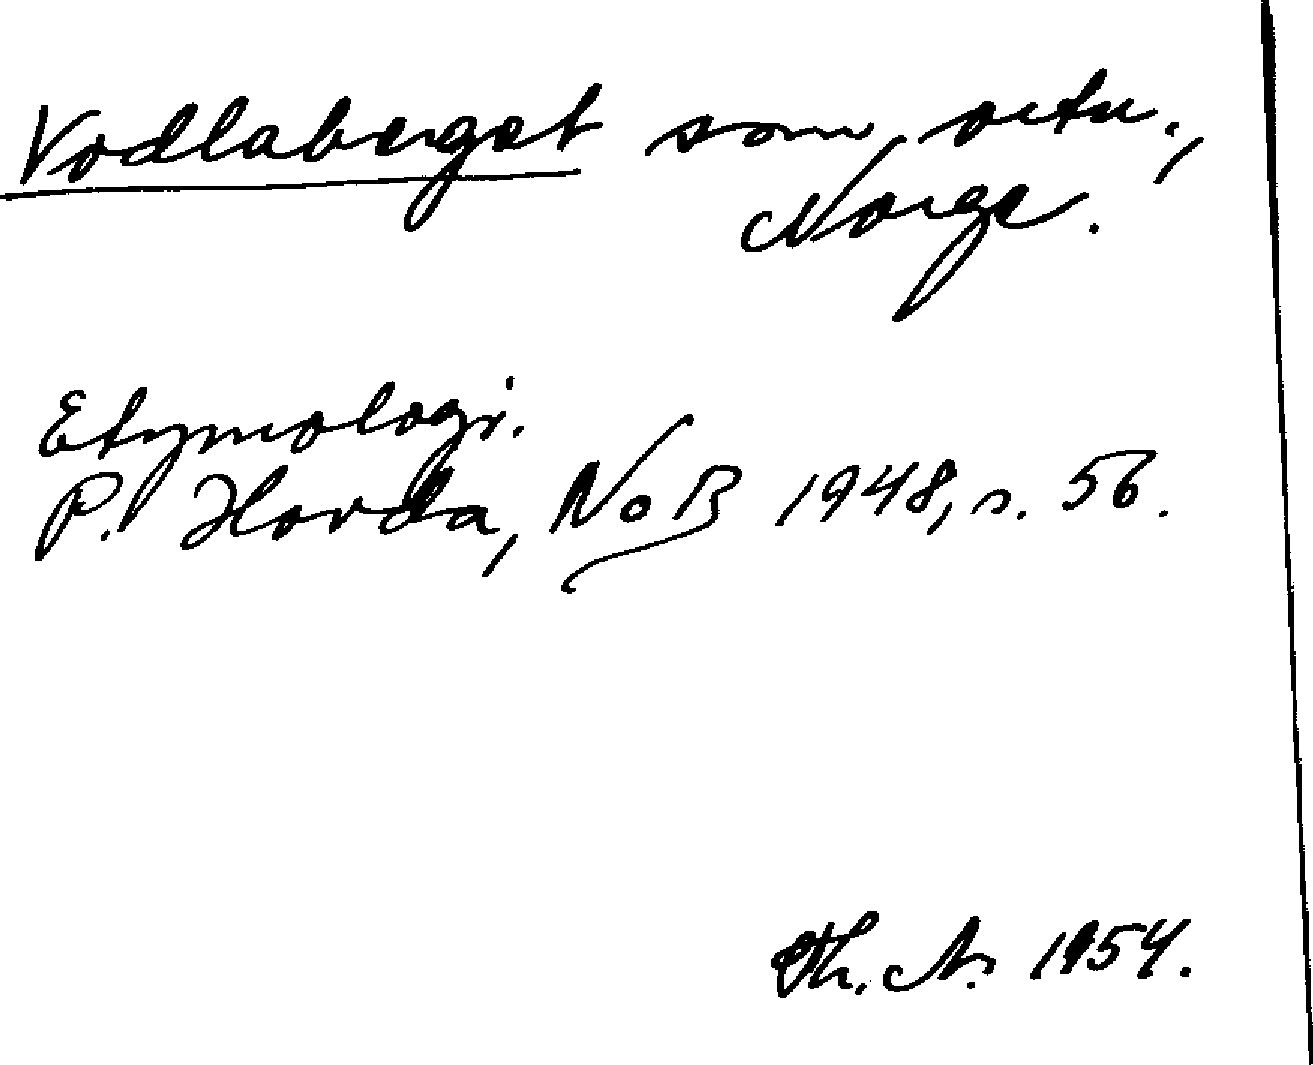 Vodlaberget som ortn.,
Norge.
Etymologi.
P. Hovda, NoB 1948, s. 56.
Th. A. 1954.